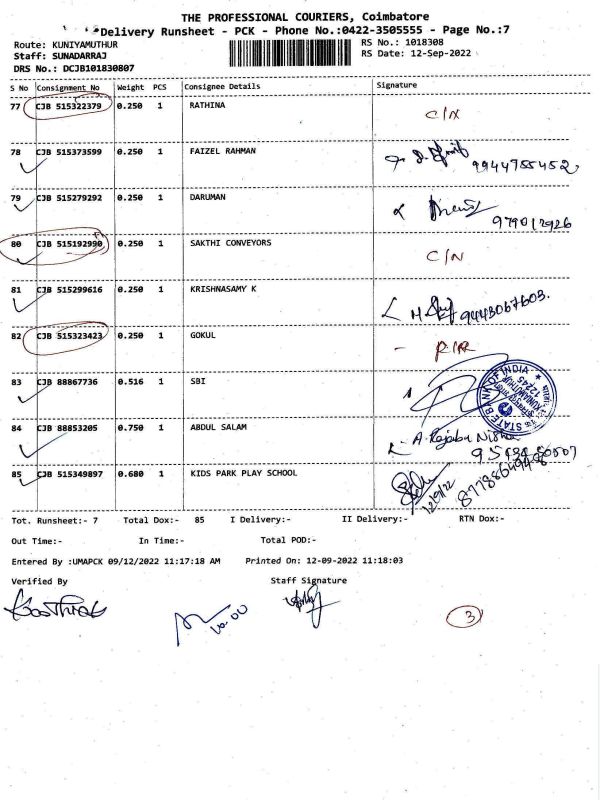 THE PROFESSIONAL COURIERS, Coimbatore
Delivery Runsheet - PCK - Phone No.:0422-3505555 - Page No.:7
Route: KUNIYAMUTHUR RS No.: 1018308
Staff: SUNADARRAJ RS Date: 12-Sep-2022
DRS No.: DCJB101830807
S No Consignment No Weight PCS Consignee Details Signature
77 CJB 515322379 0.250 1 RATHINA C/N
78 CJB 515373599 0.250 1 FAIZEL RAHMAN 9944755452
79 CJB 515279292 0.250 1 DARUMAN
80 CJB 515192990 0.250 1 SAKTHI CONVEYORS C/N
81 CJB 515299616 0.250 1 KRISHNASAMY K 9443067603.
82 CJB 515323423 0.250 1 GOKUL
83 CJB 88867736 0.516 1 SBI STATE BANK OF INDIA
84 CJB 88853205 0.750 1 ABDUL SALAM A. Rejabu Nisha
85 CJB 515349897 0.680 1 KIDS PARK PLAY SCHOOL 12/9/22
Tot. Runsheet:- 7 Total Dox:- 85 I Delivery:- II Delivery:- RTN Dox:-
Out Time:- In Time:- Total POD:-
Entered By :UMAPCK 09/12/2022 11:17:18 AM Printed On: 12-09-2022 11:18:03
Verified By Staff Signature
3